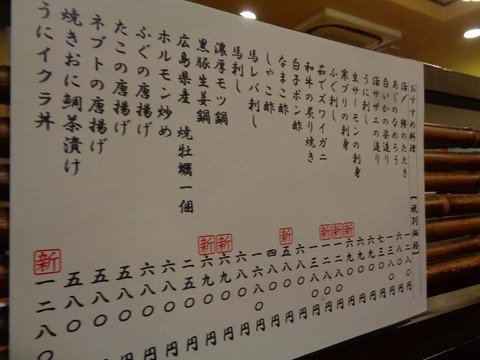 おすすめ料理 【税別価格】
活〆 鯵のたたき
あじのなめろう 六八〇円
白いかの姿造り 一三八〇円
活サザエの造り 七三〇円
うに刺し
生サーモンの刺身 六八〇円
寒ブリの刺身 新 六九〇円
ふぐ刺し 新
茹でズワイガニ 新
和牛の炙り焼き 一三八〇円
白子ポン酢 六八〇円
なまこ酢 新 五八〇円
しゃこ酢 四八〇円
馬レバ刺し
馬刺し
濃厚モツ鍋 新 六九〇円
黒豚生姜鍋 新 六九〇円
広島県産 焼牡蠣一個 二五〇円
ホルモン炒め 六八〇円
ふぐの唐揚げ 六八〇円
たこの唐揚げ 五八〇円
ネブトの唐揚げ 五八〇円
焼きおに鯛茶漬け 五八〇
うにイクラ丼 新 一二八〇